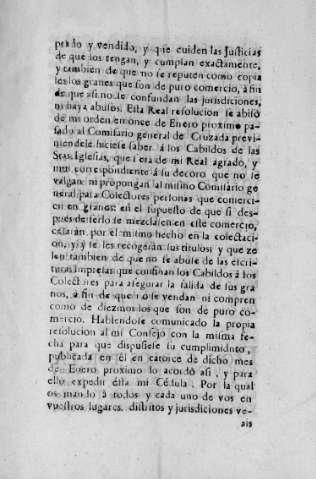 prado y vendido, y que cuiden las Justicias
de que los tengan, y cumplan exactamente,
y tambien de que no se reputen como copia
les los granes que son de puro comercio, à fin
de que asi no se confundan las jurisdiciones,
ni haya abusos. Esta Real resolucion se abisò
de mi orden en once de Enero proximo pa-
sado al Comisario general de Cruzada previ-
niendole hiciese saber à los Cabildos de las
Stas. Iglesias, que sera de mi Real agrado, y
mui correspondiente à su decoro que no se
valgan ni propongan al mismo Comisario ge
neral para Colectores personas que comerci-
en en granos: en el supuesto de que si des-
pues de serlo se mezclasen en este comercio,
cesarán por el mismo hecho en la colectaci-
on, y se les recogerán sus titulos; y que ze
len tambien de que no se abuse de las escri-
turas impresas que confian los Cabildos à los
Colectores para asegurar la salida de sus gra
nos, à fin de que no se vendan ni compren
como de diezmos los que son de puro co-
mercio. Habiendose comunicado la propia
resolucion al mi Consejo con la misma fe-
cha para que dispusiese su cumplimidnto,
publicada en él en catorce de dicho mes
de Enero proximo lo acordó asi, y para
ello expedir ésta mi Cédula. Por la qual
os mando à todos y cada uno de vos en
vuestros lugares, distritos y jurisdiciones ve-
ais